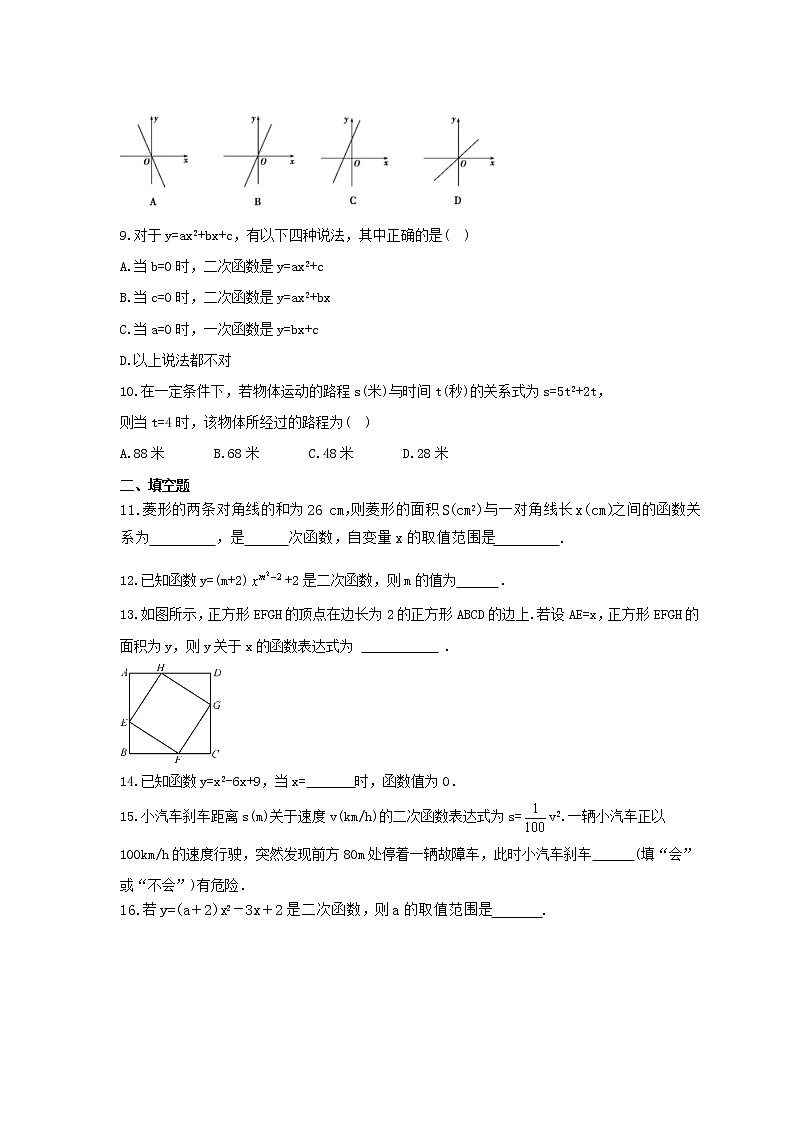 y y y y
O x O x O x O x
A B C D
9.对于y=ax²+bx+c,有以下四种说法,其中正确的是( )
A.当b=0时,二次函数是y=ax²+c
B.当c=0时,二次函数是y=ax²+bx
C.当a=0时,一次函数是y=bx+c
D.以上说法都不对
10.在一定条件下,若物体运动的路程s(米)与时间t(秒)的关系式为s=5t²+2t,
则当t=4时,该物体所经过的路程为( )
A.88米 B.68米 C.48米 D.28米
二、填空题
11.菱形的两条对角线的和为26 cm,则菱形的面积S(cm²)与一对角线长x(cm)之间的函数关
系为_________,是______次函数,自变量x的取值范围是_________.
12.已知函数y=(m+2)x^{m²-2}+2是二次函数,则m的值为______.
13.如图所示,正方形EFGH的顶点在边长为2的正方形ABCD的边上.若设AE=x,正方形EFGH的
面积为y,则y关于x的函数表达式为 ___________ .
A H D
G
E
B F C
14.已知函数y=x²-6x+9,当x=_______时,函数值为0.
15.小汽车刹车距离s(m)关于速度v(km/h)的二次函数表达式为s=1/100v².一辆小汽车正以
100km/h的速度行驶,突然发现前方80m处停着一辆故障车,此时小汽车刹车______(填“会”
或“不会”)有危险.
16.若y=(a+2)x²-3x+2是二次函数,则a的取值范围是_______.